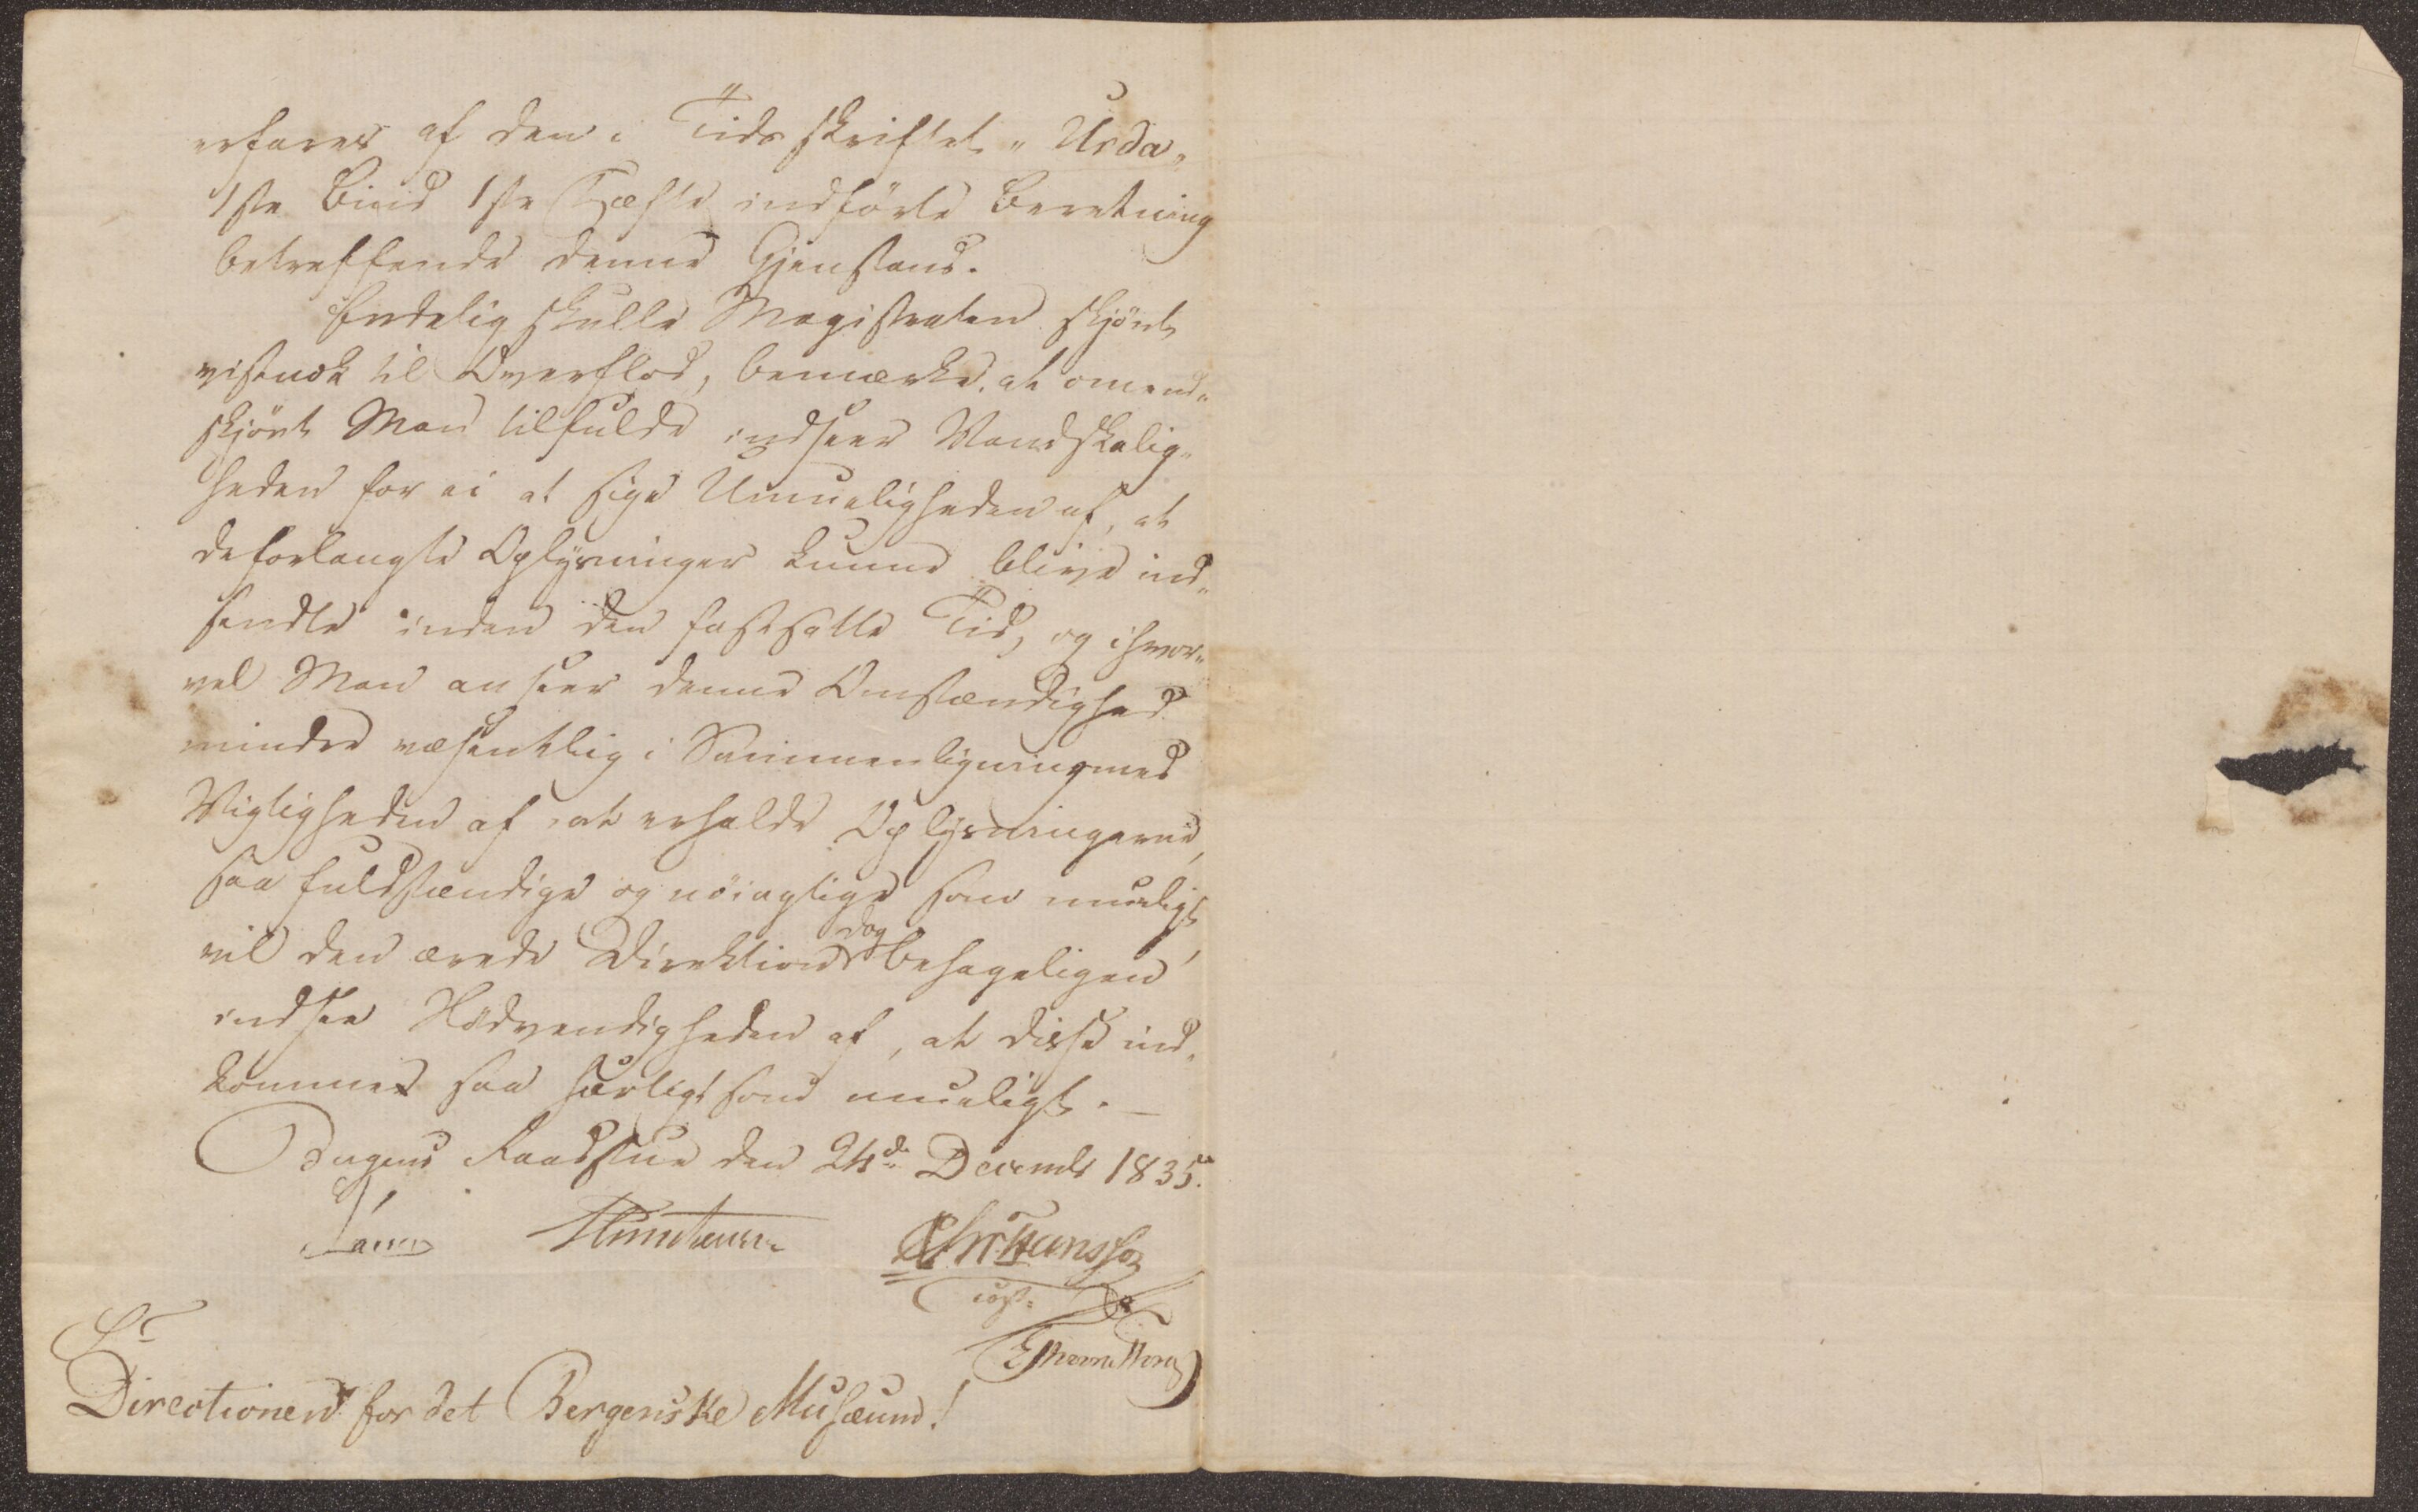 erfares af den i Tidsskriftet "Urda"
1ste Bind 1ste Hæfte indførte Beretning
betreffende denne Gjenstand.
Endelig skulle Magistraten skjönt
vistnok til Overflod, bemærke, at omend-
skjönt Man tilfulde indseer Vanskelig-
heden for ei at sige Umueligheden af, at
de forlangte Oplysninger kunne blive ind-
sendte inden den fastsatte Tid, og ihvor-
vel Man anseer denne Omstændighed
mindre væsentlig i Sammenligning med
Vigtigheden af at erholde Oplysningerne
saa fuldstændige og nöiagtige som mueligt,
vil den ærede Direktion dog behageligen
indsee Nödvendigheden af, at disse ind-
kommer saa særligt som mueligt. —
Bergens Raadstue den 24de Decembr 1835.
Christiansson
const.
Til
Directionen for det Bergenske Musæum!